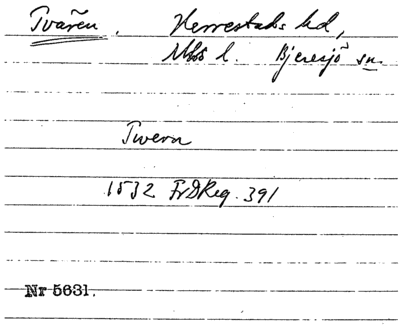 Tvären. Herrestads hd,
Mhs l. Bjeresjö sn.
Twern
1532 FrDReg. 391
Nr 5631.